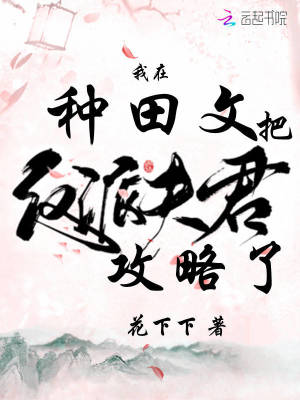 云起书院
我在
种田文把
反派夫君
攻略了
花下下 著